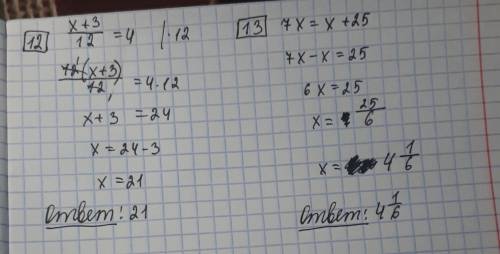 12 (x+3)/12 = 4 | ·12
12(x+3)/12 = 4·12
x+3 = 24
x = 24-3
x = 21
Ответ: 21
13 7x = x+25
7x-x = 25
6x = 25
x = 25/6
x = 4 1/6
Ответ: 4 1/6